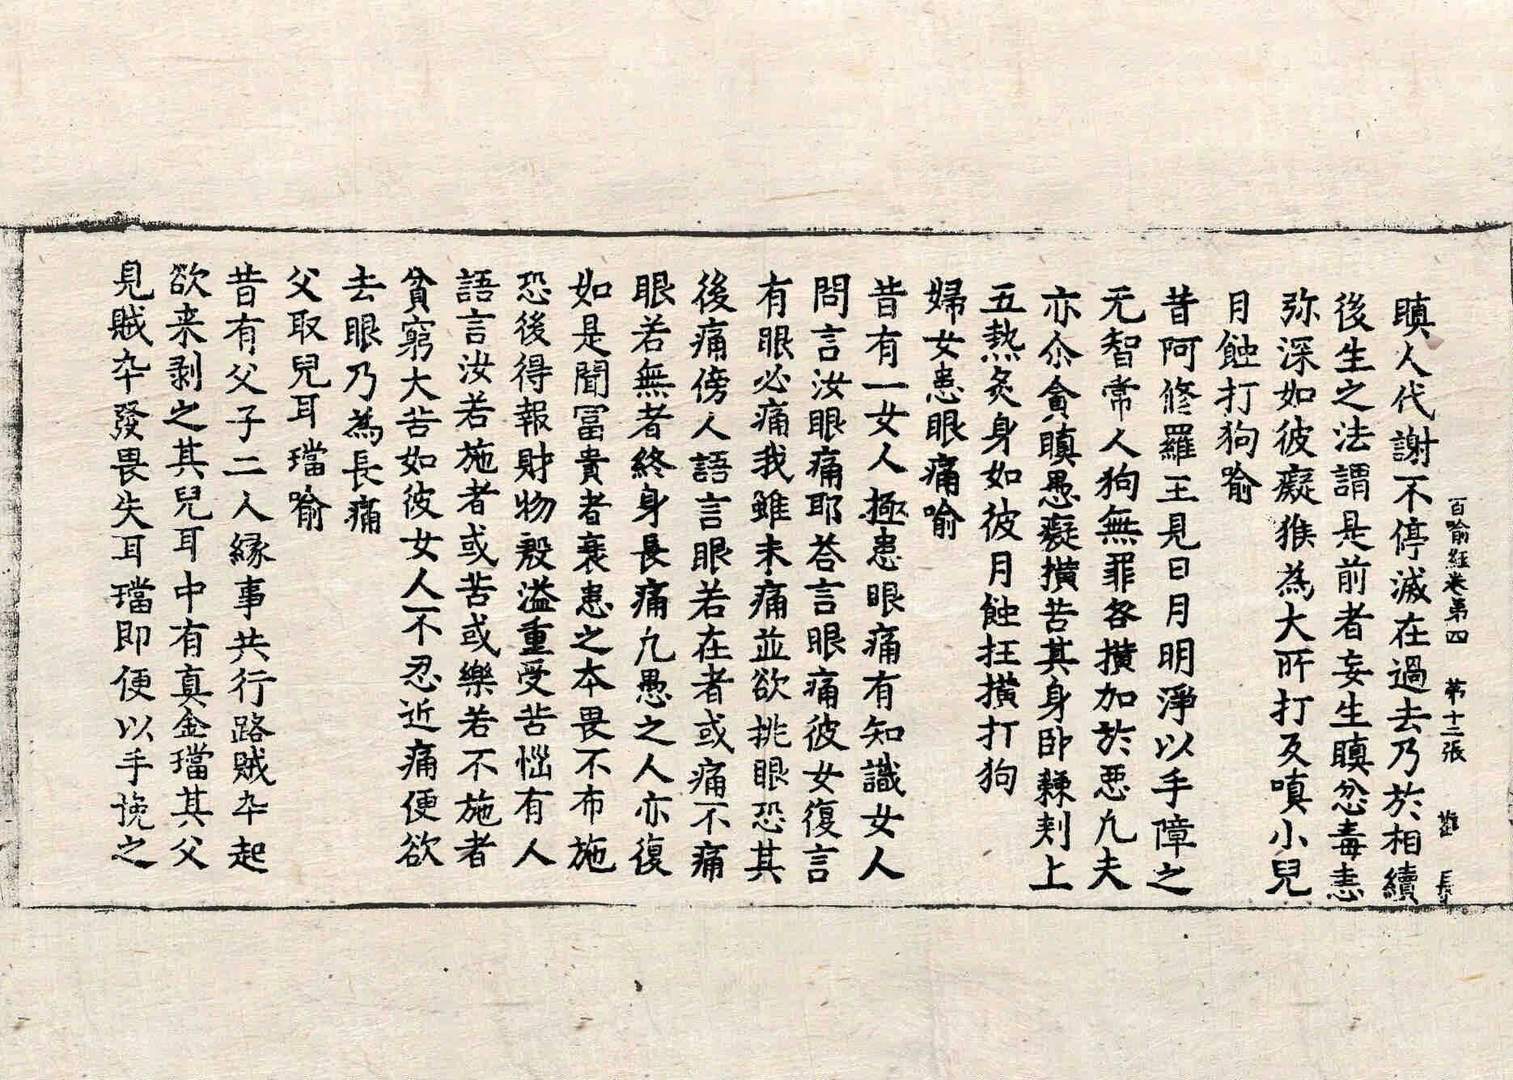 百喻經卷第四 第十二張
瞋人代謝不停滅在過去乃於相續
後生之法謂是前者妄生瞋忿毒恚
弥深如彼癡猴為大所打反嗔小兒
月蝕打狗喻
昔阿修羅王見日月明淨以手障之
无智常人狗無罪各撗加於惡凡夫
亦尒貪瞋愚癡撗苦其身卧棘刺上
五熱炙身如彼月蝕抂撗打狗
婦女患眼痛喻
昔有一女人極患眼痛有知識女人
問言汝眼痛耶荅言眼痛彼女復言
有眼必痛我雖未痛並欲挑眼恐其
後痛傍人語言眼若在者或痛不痛
眼若無者終身長痛凡愚之人亦復
如是聞冨貴者衰患之本畏不布施
恐後得報財物殷溢重受苦惱有人
語言汝若施者或苦或樂若不施者
貧窮大苦如彼女人不忍近痛便欲
去眼乃為長痛
父取兒耳璫喻
昔有父子二人緣事共行路賊卒起
欲来剥之其兒耳中有真金璫其父
見賊卒發畏失耳璫即便以手挽之